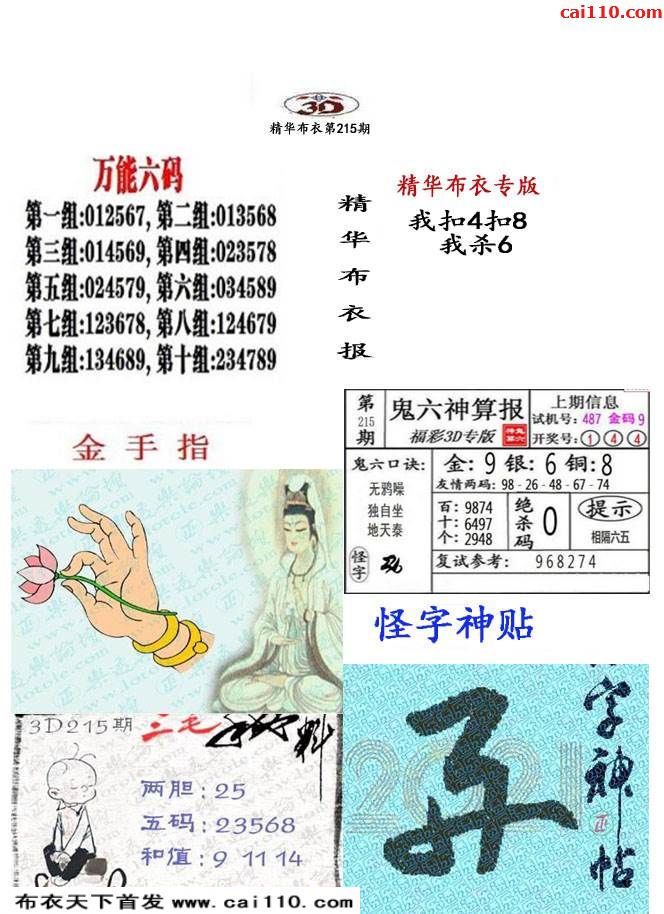 cai110.com
3D
精华布衣第215期
万能六码
第一组:012567,第二组:013568
第三组:014569,第四组:023578
第五组:024579,第六组:034589
第七组:123678,第八组:124679
第九组:134689,第十组:234789
精华布衣报
精华布衣专版
我扣4扣8
我杀6
第215期
鬼六神算报
福彩3D专版
上期信息
试机号:487 金码9
开奖号:①④④
鬼六口诀:
无鸦噪
独自坐
地天泰
怪字
金:9银:6铜:8
友情两码:98-26-48-67-74
百:9874
十:6497
个:2948
绝杀码
0
提示
相隔六五
复试参考: 968274
金手指
怪字神贴
字神帖
正
2021
3D215期
三毛
料
两胆:25
五码:23568
和值:9 11 14
布衣天下首发 www.cai110.com